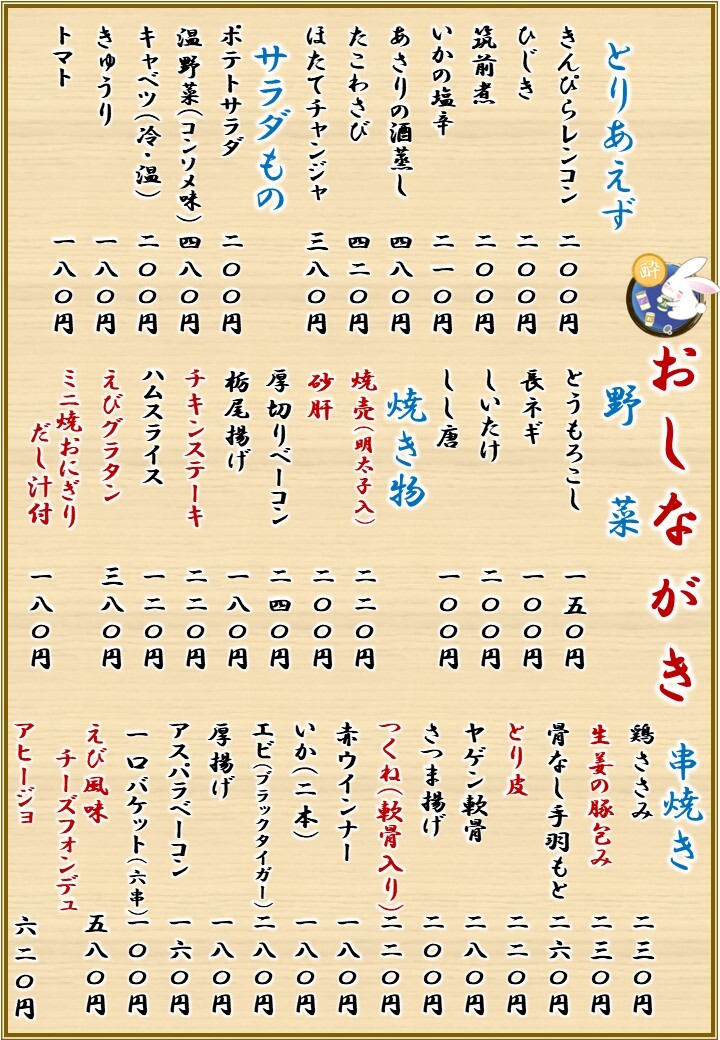 おしながき
酔
とりあえず
きんぴらレンコン 二〇〇円
ひじき 二〇〇円
筑前煮 二〇〇円
いかの塩辛 二一〇円
あさりの酒蒸し 四八〇円
たこわさび 四二〇円
ほたてチャンジャ 三八〇円
サラダもの
ポテトサラダ 二〇〇円
温野菜(コンソメ味) 四八〇円
キャベツ(冷・温) 二〇〇円
きゅうり 一八〇円
トマト 一八〇円
野菜
とうもろこし 一五〇円
長ネギ 一〇〇円
しいたけ 二〇〇円
しし唐 一〇〇円
焼き物
焼売(明太子入) 二二〇円
砂肝 二〇〇円
厚切りベーコン 二四〇円
栃尾揚げ 一八〇円
チキンステーキ 二二〇円
ハムスライス 一二〇円
えびグラタン 三八〇円
ミニ焼おにぎり
だし汁付 一八〇円
串焼き
鶏ささみ 二三〇円
生姜の豚包み 二三〇円
骨なし手羽もと 二六〇円
とり皮 二二〇円
ヤゲン軟骨 二八〇円
さつま揚げ 二〇〇円
つくね(軟骨入り) 二二〇円
赤ウインナー 一八〇円
いか(二本) 一八〇円
エビ(ブラックタイガー) 二八〇円
厚揚げ 一八〇円
アスパラベーコン 一六〇円
一口バケット(六串) 一〇〇円
えび風味
チーズフォンデュ 五八〇円
アヒージョ 六二〇円